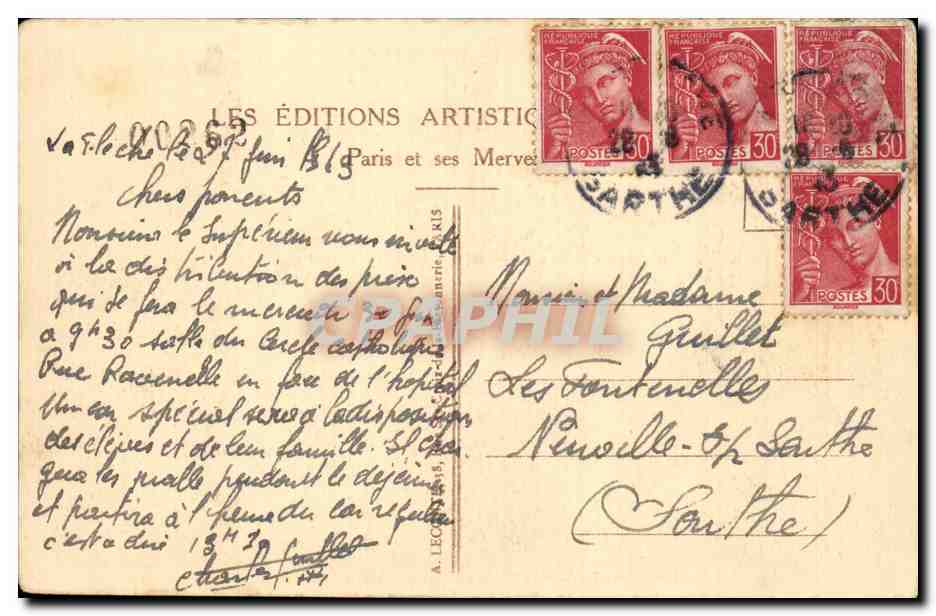 LES ÉDITIONS ARTISTIQ
Paris et ses Merve
00262
La Flèche le 27 juin 1943
Chers parents
Monsieur le Supérieur vous invite
à la distribution des prix
qui se fera le mercredi 30 juin
à 9h30 salle du Cercle catholique
Rue Ravenelle en face de l'hopital
Un car spécial sera à la disposition
des élèves et de leur famille. Il
les malle pendant le déjeuner
et partira à l'heure du car régulier
c'est a dire 13H30
Charles Guillet
A. LECONTE, 38, RUE PARIS
CPAPHIL
RÉPUBLIQUE FRANÇAISE
POSTES 30
RÉPUBLIQUE FRANÇAISE
POSTES 30
RÉPUBLIQUE FRANÇAISE
POSTES 30
POSTES 30
28 6
43
SARTHE
28 6
43
SARTHE
Monsieur et Madame
Guillet
Les Fontenelles
Neuville-s/ Sarthe
(Sarthe)